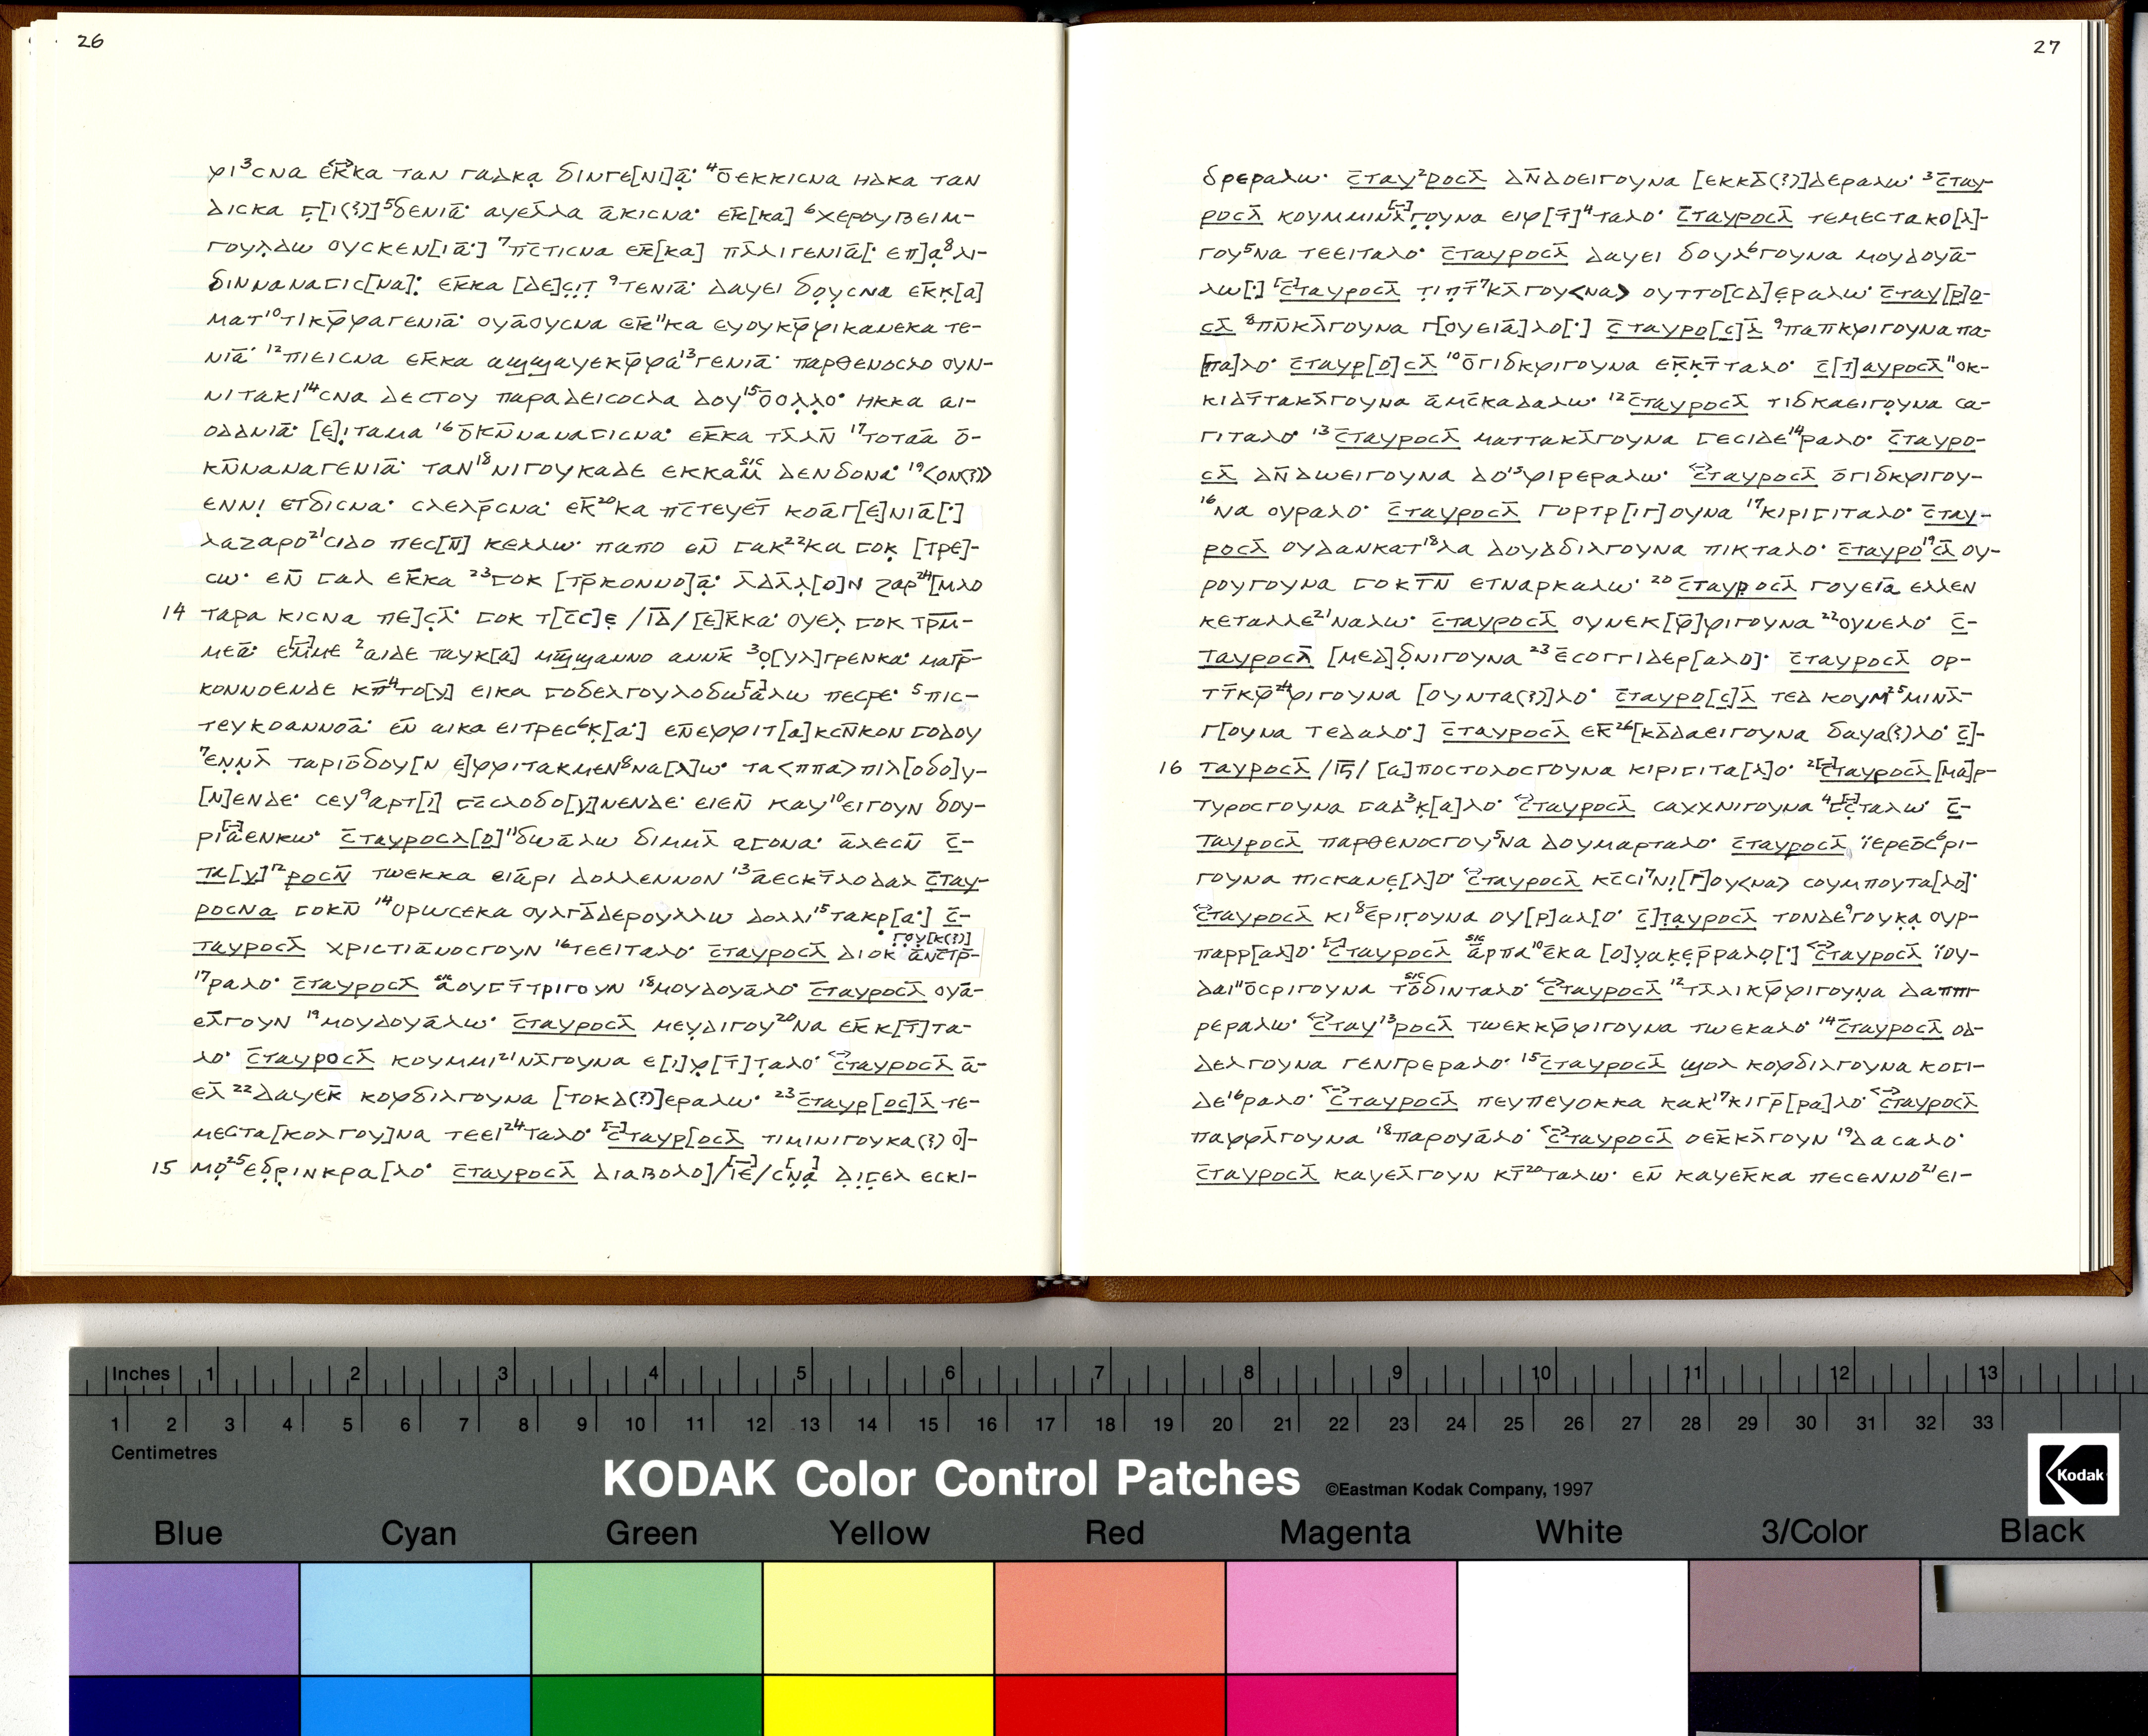 26
ⳡⲓ³ⲥⲛⲁ ⲉⲕ̄ⲕⲁ ⲧⲁⲛ ⲅⲁⲇⲕⲁ̣ ⳝⲓⲛⲅⲉ[ⲛⲓ]ⲁ̄: ⁴ⲟ̄ⲉⲕⲕⲓⲥⲛⲁ ⲏⲇⲕⲁ ⲧⲁⲛ
ⲇⲓⲥⲕⲁ ⳟ̣[ⲓ(?)]⁵ⳝⲉⲛⲓⲁ̄: ⲁⲩⲉⲗ̄ⲗⲁ ⲁ̄ⲕⲓⲥⲛⲁ· ⲉⲕ̄[ⲕⲁ] ⁶ⲭⲉⲣⲟⲩⲃⲉⲓⲙ-
ⲅⲟⲩⲗ̣ⲇⲱ ⲟⲩⲥⲕⲉⲛ[ⲓⲁ̄:] ⁷ⲡⲥ̄ⲧⲓⲥⲛⲁ ⲉⲕ̄[ⲕⲁ] ⲡⲗ̄ⲗⲓⲅⲉⲛⲓⲁ̄[: ⲉⲡ]ⲁ̣⁸ⲗⲓ-
ⳝⲓⲛⲛⲁⲛⲁⳟⲓⲥ[ⲛⲁ]: ⲉⲕ̄ⲕⲁ [ⲇⲉ]ⲥ̣ⲓ̣ⲧ̣̄ ⁹ⲧⲉⲛⲓⲁ̄: ⲇⲁⲩⲉⲓ ⳝⲟ̣ⲩⲥⲛⲁ ⲉⲕ̄ⲕ̣[ⲁ]
ⲙⲁⲧ¹⁰ⲧⲓⲕⳡ̄ⳡⲁⲅⲉⲛⲓⲁ̄: ⲟⲩⲁ̄ⲟⲩⲥⲛⲁ ⲉⲕ̄¹¹ⲕⲁ ⲉⲩⲟⲩⲕⳡ̄ⳡⲓⲕⲁⲛⲉⲕⲁ ⲧⲉ-
ⲛⲓⲁ̄: ¹²ⲡⲓⲉⲓⲥⲛⲁ ⲉⲕ̄ⲕⲁ ⲁϣϣⲁⲩⲉⲕⳡ̄ⳡⲁ¹³ⲅⲉⲛⲓⲁ̄: ⲡⲁⲣⲑⲉⲛⲟⲥⲗⲟ ⲟⲩⲛ-
ⲛⲓⲧⲁⲕⲓ¹⁴ⲥⲛⲁ ⲇⲉⲥⲧⲟⲩ ⲡⲁⲣⲁⲇⲉⲓⲥⲟⲥⲗⲁ ⲇⲟⲩ¹⁵ⲟ̄ⲟⲗ̣ⲗ̣ⲟ· ⲏⲕⲕⲁ ⲁⲓ-
ⲟⲇⲇⲛⲓⲁ̄: [ⲉ]ⲓ̣ⲧⲁⲙⲁ ¹⁶ⲟ̄ⲕⲛ̄ⲛⲁⲛⲁⳟⲓⲥⲛⲁ: ⲉⲕ̄ⲕⲁ ⲧⲗ̄ⲗⲛ̄ ¹⁷ⲧⲟⲧⲁ̄ⲁ ⲟ̄-
ⲕⲛ̄ⲛⲁⲛⲁⲅⲉⲛⲓⲁ̄: ⲧⲁⲛ¹⁸ⲛⲓⲅⲟⲩⲕⲁⲇⲉ ⲉⲕⲕⲁⲙ̄ ˢⁱᶜ ⲇⲉⲛⳝⲟⲛⲁ: ¹⁹<ⲟⲛ(?)>
ⲉⲛⲛⲓ̣ ⲉⲧⳝⲓⲥⲛⲁ· ⲥⲗⲉⲗⲣ̄ⲥⲛⲁ: ⲉⲕ̄²⁰ⲕⲁ ⲡⲥ̄ⲧⲉⲩⲉⲧ̄ ⲕⲟⲁ̄ⲅ[ⲉ]ⲛⲓⲁ̄[:]
ⲗⲁⲍⲁⲣⲟ²¹ⲥⲓⲇⲟ ⲡⲉⲥ[ⲛ̄] ⲕⲉⲗⲗⲱ· ⲡⲁⲡⲟ ⲉⲛ̄ ⳟⲁⲕ²²ⲕⲁ ⳟⲟⲕ̣ [ⲧⲣⲉ]-
ⲥⲱ· ⲉⲛ̄ ⳟⲁⲗ ⲉⲕ̄ⲕⲁ ²³ⳟⲟⲕ [ⲧⲣ̄ⲕⲟⲛⲛⲟ]ⲁ̣̄: ⲗ̄ⲇⲗ̄ⲗ̣[ⲟ]ⲛ ⲍⲁⲣ²⁴[ⲙⲗⲟ
14 ⲧⲁⲣⲁ ⲕⲓⲥⲛⲁ ⲡⲉ]ⲥ̣ⲗ̣̄: ⳟⲟⲕ ⲧ[ⲥ̄ⲥ]ⲉ̣ /ⲓ̄ⲇ̄/ [ⲉ]ⲕ̄ⲕⲁ: ⲟⲩⲉⲗ̣ ⳟⲟⲕ ⲧⲣ̄ⲙ̄-
ⲙⲉⲁ̄: ⲉⲙ̄ⲙⲉ ²ⲁⲓⲇⲉ ⲧⲁⲩⲕ[ⲁ] ⲙϣ̄ϣⲁⲛⲛⲟ ⲁⲛⲛⲕ̄ ³ⲟ̣[ⲩⲗ]ⲅⲣⲉⲛⲕⲁ: ⲙⲁⲣ̄-
ⲕⲟⲛⲛⲟⲉⲛⲇⲉ ⲕⲡ̄⁴ⲧⲟ[ⲩ] ⲉⲓⲕⲁ ⳟⲟⳝⲉⲗⲅⲟⲩⲗⲟⳝⲱⲁ̄ⲗⲱ ⲡⲉⲥⲣⲉ· ⁵ⲡⲓⲥ-
ⲧⲉⲩⲕⲟⲁⲛⲛⲟⲁ̄: ⲉⲛ̄ ⲁⲓⲕⲁ ⲉⲓⲧⲣⲉⲥ⁶ⲕ̣[ⲁ:] ⲉⲛ̄ⲉⳡⳡⲓⲧ[ⲁ]ⲕⲥⲛ̄ⲕⲟⲛ ⳟⲟⲇⲟⲩ
⁷ⲉⲛ̣ⲛ̣ⲗ̄ ⲧⲁⲣⲓⲟ̄ⳝⲟⲩ[ⲛ ⲉ]ⳡⳡⲓⲧⲁⲕⲙⲉⲛ⁸ⲛⲁ[ⲗ]ⲱ· ⲧⲁ<ⲡⲡⲁ>ⲡⲓⲗ[ⲟⳝⲟ]ⲩ-
[ⲛ]ⲉⲛⲇⲉ· ⲥⲉⲩ⁹ⲁⲣⲧ[ⲓ̄] ⳟⲥ̄ⲥⲗⲟⳝⲟ[ⲩ]ⲛⲉⲛⲇⲉ: ⲉⲓⲉⲛ̄ ⲕⲁⲩ¹⁰ⲉⲓⲅⲟⲩⲛ ⳝⲟⲩ-
ⲣⲓⲁ̄ⲉⲛⲕⲱ· ⲥ̄ⲧⲁⲩⲣⲟⲥⲗ[ⲟ]¹¹ⳝⲱⲁ̄ⲗⲱ ⳝⲓⲙⲙⲗ̄ ⲁⳟⲟⲛⲁ: ⲁ̄ⲗⲉⲥⲛ̄ ⲥ̄-
ⲧⲁ[ⲩ]¹²ⲣⲟⲥⲛ̄ ⲧⲱⲉⲕⲕⲁ ⲉⲓⲁ̄ⲣⲓ ⲇⲟⲗⲗⲉⲛⲛⲟⲛ ¹³ⲁ̄ⲉⲥⲕⲧ̄ⲗⲟⲇⲁⲗ ⲥ̄ⲧⲁⲩ-
ⲣⲟⲥⲛⲁ ⳟⲟⲕⲛ̄ ¹⁴ⲟⲣⲱⲥⲉⲕⲁ ⲟⲩⲗⲅⲇ̄ⲇⲉⲣⲟⲩⲗⲗⲱ ⲇⲟⲗⲗⲓ¹⁵ⲧⲁⲕⲣ[ⲁ:] ⲥ̄-
ⲧⲁⲩⲣⲟⲥⲗ̄ ⲭⲣⲓⲥⲧⲓⲁ̄ⲛⲟⲥⲅⲟⲩⲛ ¹⁶ⲧⲉⲉⲓⲧⲁⲗⲟ· ⲥ̄ⲧⲁⲩⲣⲟⲥⲗ̄ ⲇⲓⲟⲕ·ⲅ̣ⲟ̣ⲩ̣[ⲕ(?)] ⲁ̄ⲛⲥ̄ⲧⲣ̄-
¹⁷ⲣⲁⲗⲟ· ⲥ̄ⲧⲁⲩⲣⲟⲥⲗ̄ ˢⁱᶜ ⲁ̄ⲟⲩⳟⲧ̄ⲧⲣⲓⲅⲟⲩⲛ ¹⁸ⲙⲟⲩⲇⲟⲩⲁ̄ⲗⲟ· ⲥ̄ⲧⲁⲩⲣⲟⲥⲗ̄ ⲟⲩⲁ̄-
ⲉⲗ̄ⲅⲟⲩⲛ ¹⁹ⲙⲟⲩⲇⲟⲩⲁ̄ⲗⲱ· ⲥ̄ⲧⲁⲩⲣⲟⲥⲗ̄ ⲙⲉⲩⲇⲓⲅⲟⲩ²⁰ⲛⲁ ⲉⲕ̄ⲕ[ⲧ̄]ⲧⲁ-
ⲗⲟ· ⲥ̄ⲧⲁⲩⲣⲟⲥⲗ̄ ⲕⲟⲩⲙⲙⲓ²¹ⲛⲗ̄ⲅⲟⲩⲛⲁ ⲉ[ⲓ]ⳡ[ⲧ̄]ⲧ̣ⲁⲗⲟ· ⲥ̄ⲧⲁⲩⲣⲟⲥⲗ̄ ⲁ̄-
ⲉⲗ̄ ²²ⲇⲁⲩⲉⲕ̄ ⲕⲟⳡⳝⲓⲗⲅⲟⲩⲛⲁ [ⲧⲟⲕⲇ(?)]ⲉⲣⲁⲗⲱ· ²³ⲥ̄ⲧⲁⲩⲣ[ⲟⲥ]ⲗ̄ ⲧⲉ-
ⲙⲉⲥⲧⲁ[ⲕⲟⲗⲅⲟⲩ]ⲛⲁ ⲧⲉⲉⲓ²⁴ⲧⲁⲗⲟ· ⲥ̄ⲧⲁⲩⲣ[ⲟⲥⲗ̄ ⲧⲓⲙⲓⲛⲓⲅⲟⲩⲕⲁ(?) ⲟ]-
15 ⲙⲟ̣²⁵ⲉⳝⲣ̣ⲓⲛⲕⲣⲁ[ⲗⲟ· ⲥ̄ⲧⲁⲩⲣⲟⲥⲗ̄ ⲇⲓⲁⲃⲟⲗⲟ]/ⲓ̄ⲉ̄/ⲥⲛ̣ⲁ̣ ⲇ̣ⲓ̣ⳟⲉⲗ ⲉⲥⲕⲓ-
27
ⳝⲣⲉⲣⲁⲗⲱ· ⲥ̄ⲧⲁⲩ²ⲣⲟⲥⲗ̄ ⲇⲛ̄ⲇⲟⲉⲓⲅⲟⲩⲛⲁ [ⲉⲕⲕⲇ̄(?)]ⲇⲉⲣⲁⲗⲱ· ³ⲥ̄ⲧⲁⲩ-
ⲣⲟⲥⲗ̄ ⲕⲟⲩⲙⲙⲓⲛⲗ̄ⲅ̣ⲟⲩⲛⲁ ⲉⲓⳡ[ⲧ̄]⁴ⲧⲁⲗⲟ· ⲥ̄ⲧⲁⲩⲣⲟⲥⲗ̄ ⲧⲉⲙⲉⲥⲧⲁⲕⲟ[ⲗ]-
ⲅⲟⲩ⁵ⲛⲁ ⲧⲉⲉⲓⲧⲁⲗⲟ· ⲥ̄ⲧⲁⲩⲣⲟⲥⲗ̄ ⲇⲁⲩⲉⲓ ⳝⲟⲩⲗ⁶ⲅⲟⲩⲛⲁ ⲙⲟⲩⲇⲟⲩⲁ̄-
ⲗⲱ[·] ⲥ̄ⲧⲁⲩⲣⲟⲥⲗ̄ ⲧ̣ⲓⲡ̣ⲧ̄⁷ⲕⲗ̄ⲅⲟⲩ<ⲛⲁ> ⲟⲩⲧⲧⲟ[ⲥⲇ]ⲉ̣ⲣⲁⲗⲱ· ⲥ̄ⲧⲁⲩ[ⲣ]ⲟ-
ⲥⲗ̄ ⁸ⲡⲛ̄ⲕⲗ̄ⲅⲟⲩⲛⲁ ⲅ[ⲟⲩⲉⲓⲁ̄]ⲗⲟ[·] ⲥ̄ⲧⲁⲩⲣⲟ[ⲥ]ⲗ̄ ⁹ⲡⲁⲡⲕⳡⲓⲅⲟⲩⲛⲁ ⲡⲁ-
[ⲡⲁ]ⲗⲟ· ⲥ̄ⲧⲁⲩⲣ[ⲟ]ⲥⲗ̄ ¹⁰ⲟ̄ⲅⲓⳝⲕⳡⲓⲅⲟⲩⲛⲁ ⲉⲕ̄ⲕ̣ⲧ̄ⲧⲁⲗⲟ: ⲥ̄[ⲧ]ⲁⲩⲣⲟⲥⲗ̄ ¹¹ⲟⲕ-
ⲕⲓⲇⲧ̄ⲧⲁⲕⲗ̄ⲅⲟⲩⲛⲁ ⲁ̄ⲙⲥ̄ⲕⲁⲇⲁⲗⲱ· ¹²ⲥ̄ⲧⲁⲩⲣⲟⲥⲗ̄ ⲧⲓⳝⲕⲁⲉⲓⲅⲟ̣ⲩⲛⲁ ⲥⲁ-
ⲅⲓⲧⲁⲗⲟ· ¹³ⲥ̄ⲧⲁⲩⲣⲟⲥⲗ̄ ⲙⲁⲧⲧⲁⲕⲗ̄ⲅⲟⲩⲛⲁ ⳟⲉⲥⲓⲇⲉ¹⁴ⲣⲁⲗⲟ· ⲥ̄ⲧⲁⲩⲣⲟ-
ⲥⲗ̄ ⲇⲛ̄ⲇⲱⲉⲓⲅⲟⲩⲛⲁ ⲇⲟ¹⁵ⳡⲓⲣⲉⲣⲁⲗⲱ· ⲥ̄ⲧⲁⲩⲣⲟⲥⲗ̄ ⲟ̄ⲅⲓⳝⲕⳡⲓⲅⲟⲩ-
¹⁶ⲛⲁ ⲟⲩⲣⲁⲗⲟ· ⲥ̄ⲧⲁⲩⲣⲟⲥⲗ̄ ⲅⲟⲣⲧⲣ[ⲓⲅ]ⲟⲩⲛⲁ ¹⁷ⲕⲓⲣⲓⳟⲓⲧⲁⲗⲟ· ⲥ̄ⲧⲁⲩ-
ⲣⲟⲥⲗ̄ ⲟⲩⲇⲁⲛⲕⲁⲧ¹⁸ⲗⲁ ⲇⲟⲩⲇⳝⲓⲗⲅⲟⲩⲛⲁ ⲡⲓⲕⲧⲁⲗⲟ· ⲥ̄ⲧⲁⲩⲣⲟ¹⁹ⲥⲗ̄ ⲟⲩ-
ⲣⲟⲩⲅⲟⲩⲛⲁ ⳟⲟⲕⲧ̄ⲛ̄ ⲉⲧⲛⲁⲣⲕⲁⲗⲱ· ²⁰ⲥ̄ⲧⲁⲩⲣⲟⲥⲗ̄ ⲅⲟⲩⲉⲓ̄ⲁ ⲉⲗⲗⲉⲛ
ⲕⲉⲧⲁⲗⲗⲉ²¹ⲛⲁⲗⲱ· ⲥ̄ⲧⲁⲩⲣⲟⲥⲗ̄ ⲟⲩⲛⲉⲕ[ⳡ̄]ⳡⲓⲅⲟⲩⲛⲁ ²²ⲟⲩⲛⲉⲗⲟ· ⲥ̄-
ⲧⲁⲩⲣⲟⲥⲗ̄ [ⲙⲉⲇ]ⳝ̣ⲛⲓⲅⲟⲩⲛⲁ ²³ⲉ̄ⲥⲟⲅⲅⲓⲇⲉⲣ[ⲁⲗⲟ]· ⲥ̄ⲧⲁⲩⲣⲟⲥⲗ̄ ⲟⲣ-
ⲧⲧ̄ⲕⳡ̄²⁴ⳡⲓⲅⲟⲩⲛⲁ [ⲟⲩⲛⲧⲁ(?)]ⲗⲟ· ⲥ̄ⲧⲁⲩⲣⲟ[ⲥ]ⲗ̄ ⲧⲉⲇ ⲕⲟⲩⲙ²⁵ⲙⲓⲛⲗ̄-
ⲅ[ⲟⲩⲛⲁ ⲧⲉⲇⲁⲗⲟ·] ⲥ̄ⲧⲁⲩⲣⲟⲥⲗ̄ ⲉⲕ̄²⁶[ⲕⲇ̄ⲇⲁⲉⲓⲅⲟⲩⲛⲁ ⳝⲁⲩⲁ(?)ⲗⲟ· ⲥ̄]-
16 ⲧⲁⲩⲣⲟⲥⲗ̄ /ⲓ̄ⲋ̄/ [ⲁ]ⲡⲟⲥⲧⲟⲗⲟⲥⲅⲟⲩⲛⲁ ⲕⲓⲣⲓⳟⲓⲧⲁ[ⲗ]ⲟ· ²ⲥ̄ⲧⲁⲩⲣⲟⲥⲗ̄ [ⲙⲁ]ⲣ-
ⲧⲩⲣⲟⲥⲅⲟⲩⲛⲁ ⳟⲁⲇ³ⲕ̣[ⲁ]ⲗⲟ· ⲥ̄ⲧⲁⲩⲣⲟⲥⲗ̄ ⲥⲁⲭⲭⲛⲓⲅⲟⲩⲛⲁ ⁴ⳟⲥ̄ⲧⲁⲗⲱ· ⲥ̄-
ⲧⲁⲩⲣⲟⲥⲗ̄ ⲡⲁⲣⲑⲉⲛⲟⲥⲅⲟⲩ⁵ⲛⲁ ⲇⲟⲩⲙⲁⲣⲧⲁⲗⲟ· ⲥ̄ⲧⲁⲩⲣⲟⲥⲗ̄ ⲓ̈ⲉⲣⲉⲟ̄ⲥ⁶ⲣⲓ-
ⲅⲟⲩⲛⲁ ⲡⲓⲥⲕⲁⲛⲉ̣[ⲗ]ⲟ· ⲥ̄ⲧⲁⲩⲣⲟⲥⲗ̄ ⲕⲥ̄ⲥⲓ⁷ⲛⲓ̣[ⲅ]ⲟⲩ<ⲛⲁ> ⲥⲟⲩⲙⲡⲟⲩⲧⲁ[ⲗⲟ]·
ⲥ̄ⲧⲁⲩⲣⲟⲥⲗ̄ ⲕⲓ⁸ⲉ̄ⲣⲓⲅⲟⲩⲛⲁ ⲟⲩ[ⲣ]ⲁⲗ[ⲟ· ⲥ̄]ⲧ̣ⲁⲩⲣⲟⲥⲗ̄ ⲧⲟⲛⲇⲉ⁹ⲅⲟⲩⲕⲁ̣ ⲟⲩⲣ-
ⲡⲁⲣⲣ[ⲁⲗ]ⲟ· ⲥ̄ⲧⲁⲩⲣⲟⲥⲗ̄ ˢⁱᶜ ⲁ̄ⲣⲡⲁ¹⁰ⲉ̄ⲕⲁ [ⲟ]ⲩ̣ⲁⲕⲉ̣ⲣ̄ⲣⲁⲗⲟ̣[·] ⲥ̄ⲧⲁⲩⲣⲟⲥⲗ̄ ⲓ̈ⲟⲩ-
ⲇⲁⲓ¹¹ⲟ̄ⲥⲣⲓⲅⲟⲩⲛⲁ ˢⁱᶜ ⲧⲟ̄ⳝⲓⲛⲧⲁⲗⲟ· ⲥ̄ⲧⲁⲩⲣⲟⲥⲗ̄ ¹²ⲧⲗ̄ⲗⲓⲕⳡ̄ⳡⲓⲅⲟⲩⲛ̣ⲁ ⲇⲁⲡⲡⲓ-
ⲣⲉⲣⲁⲗⲱ· ⲥ̄ⲧⲁⲩ¹³ⲣⲟⲥⲗ̄ ⲧⲱⲉⲕⲕⳡ̄ⳡⲓⲅⲟⲩⲛⲁ ⲧⲱⲉⲕⲁⲗⲟ· ¹⁴ⲥ̄ⲧⲁⲩⲣⲟⲥⲗ̄ ⲟⲇ-
ⲇⲉⲗⲅⲟⲩⲛⲁ ⲅⲉⲛⲅⲣⲉⲣⲁⲗⲟ· ¹⁵ⲥ̄ⲧⲁⲩⲣⲟⲥⲗ̄ ϣⲟⲗ ⲕⲟⳡⳝⲓⲗⲅⲟⲩⲛⲁ ⲕⲟⳟⲓ-
ⲇⲉ¹⁶ⲣⲁⲗⲟ· ⲥ̄ⲧⲁⲩⲣⲟⲥⲗ̄ ⲡⲉⲩⲡⲉⲩⲟⲕⲕⲁ ⲕⲁⲕ¹⁷ⲕⲓⲅⲣ̄[ⲣⲁ]ⲗⲟ· ⲥ̄ⲧⲁⲩⲣⲟⲥⲗ̄
ⲡⲁⳡⳡⲗ̄ⲅⲟⲩⲛⲁ ¹⁸ⲡⲁⲣⲟⲩⲁ̄ⲗⲟ· ⲥ̄ⲧⲁⲩⲣⲟⲥⲗ̄ ⲟⲉⲕ̄ⲕⲗ̄ⲅⲟⲩⲛ ¹⁹ⲇⲁⲥⲁⲗⲟ·
ⲥ̄ⲧⲁⲩⲣⲟⲥⲗ̄ ⲕⲁⲩⲉⲗ̄ⲅⲟⲩⲛ ⲕⲧ̄²⁰ⲧⲁⲗⲱ· ⲉⲛ̄ ⲕⲁⲩⲉⲕ̄ⲕⲁ ⲡⲉⲥⲉⲛⲛⲟ²¹ⲉⲓ-
Inches 1 2 3 4 5 6 7 8 9 10 11 12 13
1 2 3 4 5 6 7 8 9 10 11 12 13 14 15 16 17 18 19 20 21 22 23 24 25 26 27 28 29 30 31 32 33
Centimetres
KODAK Color Control Patches ©Eastman Kodak Company, 1997
Kodak
Blue Cyan Green Yellow Red Magenta White 3/Color Black